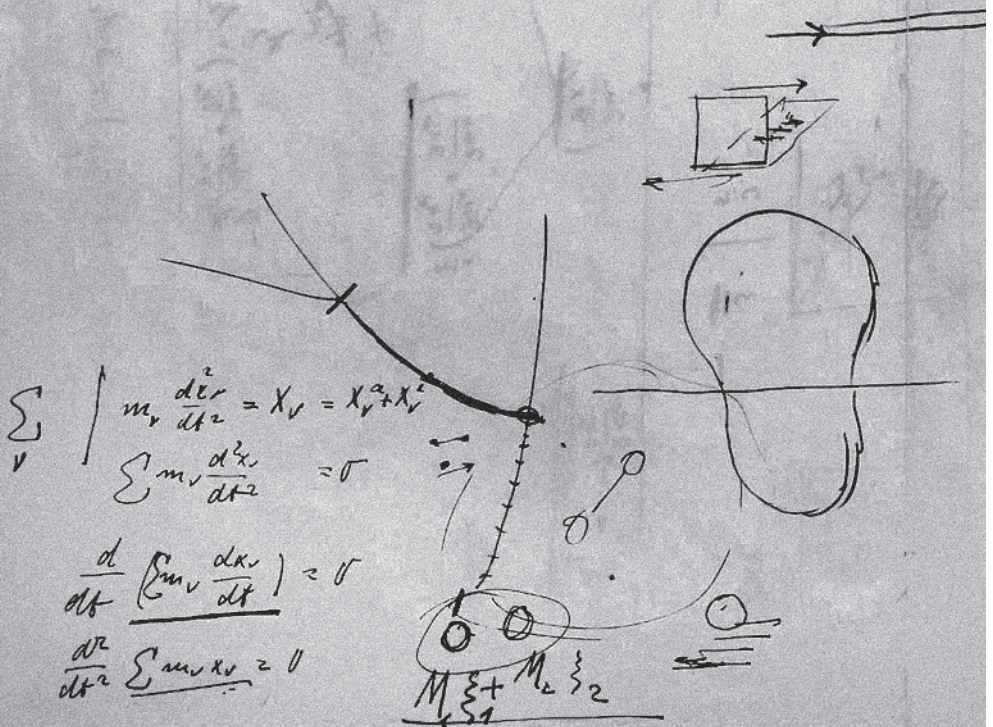 ∑_ν | m_ν d²x_ν/dt² = X_ν = X_ν^a + X_ν^i
∑ m_ν d²x_ν/dt² = 0
d/dt (∑ m_ν dx_ν/dt) = 0
d²/dt² ∑ m_ν x_ν = 0
M ξ_1 + M_2 ξ_2